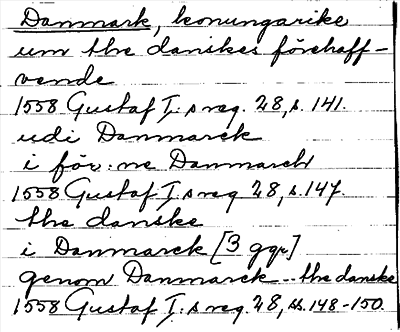 Danmark, konungarike
um the danskes förehaff-
vende
1558 Gustaf I:s reg. 28, s. 141.
udi Danmarck
i för:ne Danmarck
1558 Gustaf I:s reg 28, s. 147.
the danske
i Danmarck [3 ggr]
genom Danmarck -- the danske
1558 Gustaf I:s reg. 28, ss. 148-150.